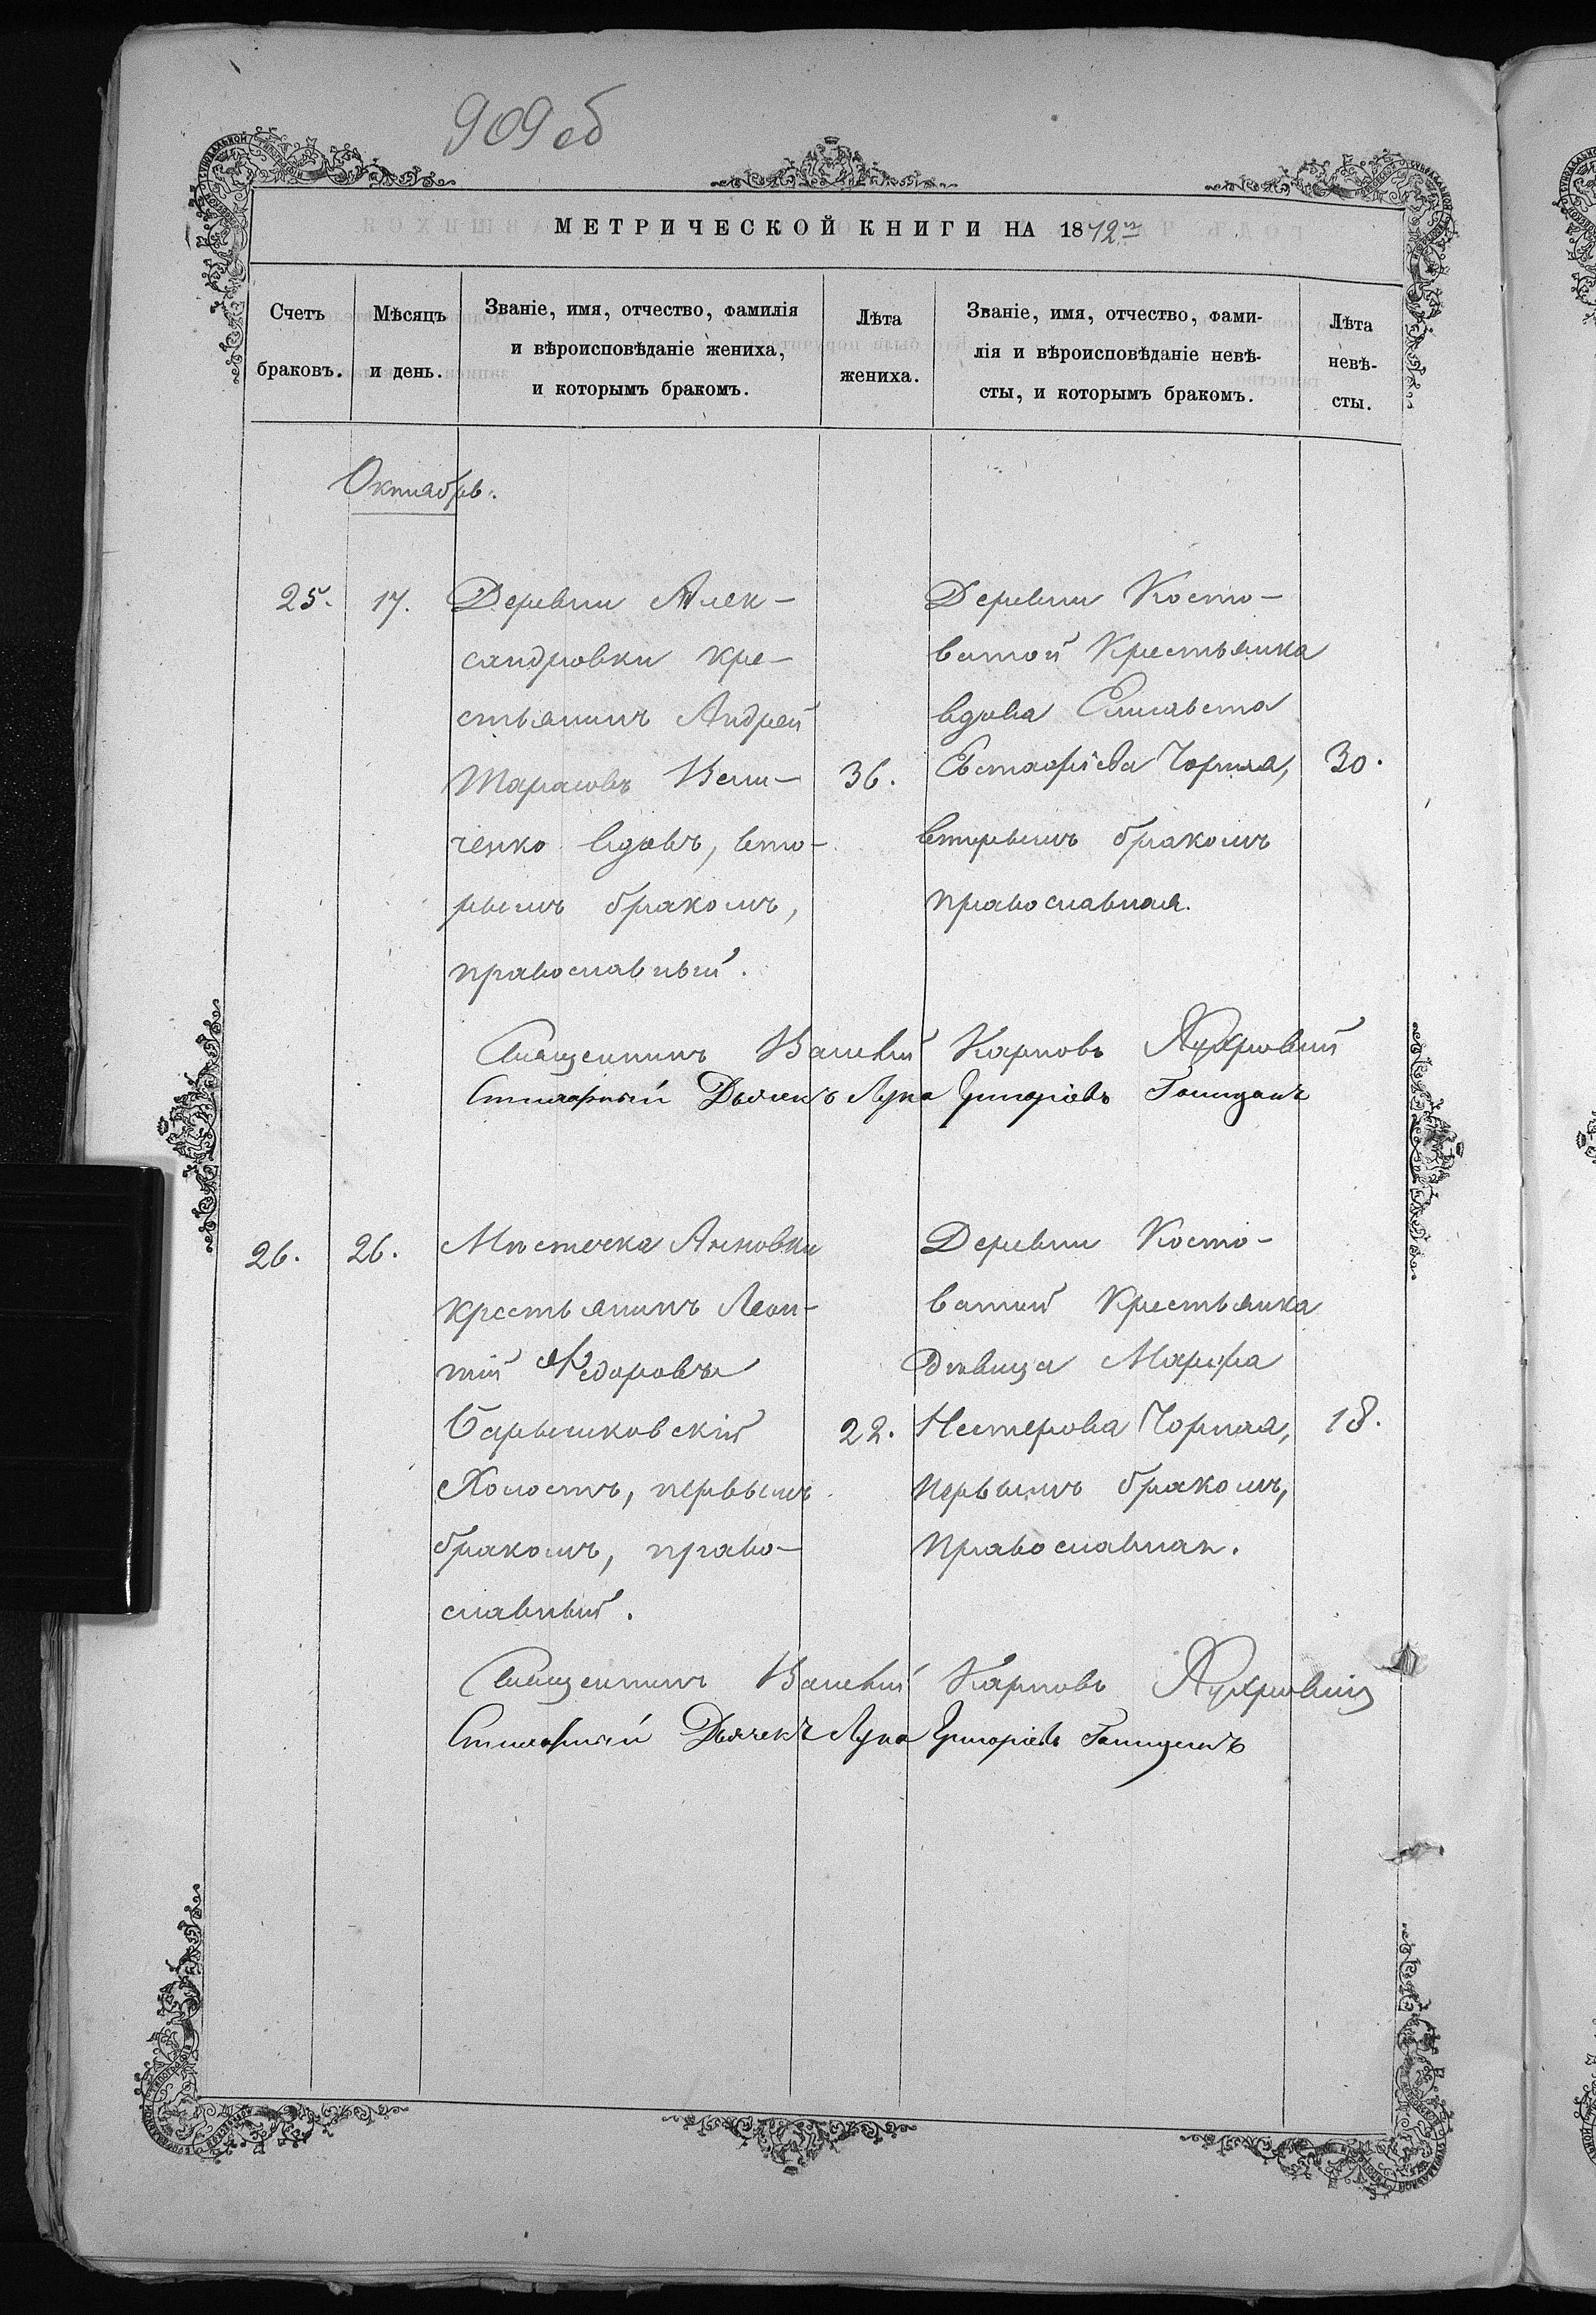 909 об
МЕТРИЧЕСКОЙ КНИГИ НА 1872 г
Счетъ браковъ.
Мѣсяцъ и день.
Званіе, имя, отчество, фамилія
и вѣроисповѣданіе жениха,
и которымъ бракомъ.
Лѣта
жениха.
Званіе, имя, отчество, фами-
лія и вѣроисповѣданіе невѣ-
сты, и которымъ бракомъ.
Лѣта
невѣ-
сты.
Октябрь.
25.
17.
Деревни Алек-
сандровки кре-
стьянинъ Андрей
Тарасовъ Вели-
ченко вдовъ, вто-
рымъ бракомъ,
православный.
36.
Деревни Косто-
ватой Крестьянка
вдова Елисавета
Евстафіева Чорная,
вторымъ бракомъ
православная.
30.
Священникъ Василий Карповъ
Стихарный Дьячекъ Лука Григоріевъ
26.
26.
Мѣстечка Акновки
крестьянинъ Леон-
тій Федоровъ
Барышковскій
Холостъ, первымъ
бракомъ, право-
славный.
22.
Деревни Косто-
ватой Крестьянка
дѣвица Марфа
Нестерова Чорная,
первымъ бракомъ,
Православная.
18.
Священникъ Василий Карповъ
Стихарный Дьячекъ Лука Григоріевъ